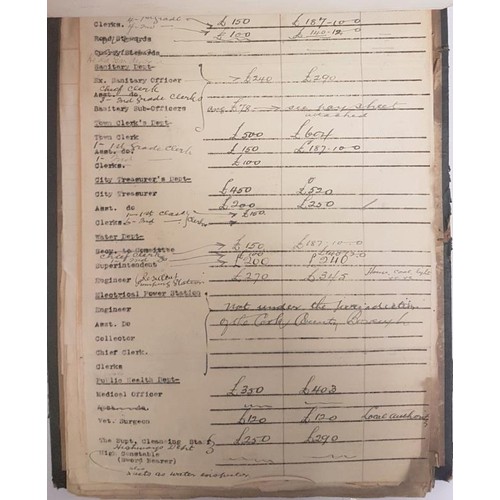 Clerks. £150 £187-10-0
Road/Stewards £100 £140-12-0
Quarry/Stewards
Sanitary Dept-
Ex. Sanitary Officer → £240 £290
Chief Clerk
Asst. do.
3- 2nd Grade Clerks
Sanitary Sub-Officers £78 → see new sheet attached
Town Clerk's Dept-
Town Clerk £500 £604
1- 1st Grade Clerk
Asst. do. £150 £187-10-0
Clerks. £100
City Treasurer's Dept-
City Treasurer £450 £520
Asst. do £200 £250
Clerks. £150
Water Dept-
Secy. to Committee £150 £187-10-0
Chief Clerk
Superintendent £200 £240
Engineer (Resident Pumping Station) £270 £345 House, coal, light
Electrical Power Station
Engineer Not under the jurisdiction
Asst. Do of the Cork County Borough.
Collector
Chief Clerk.
Clerks
Public Health Dept-
Medical Officer £350 £403
Asst. do.
Vet. Surgeon £120 £120 Local authority
The Supt. Cleansing Staff £250 £290
Highways Dept
High Constable
(Sword Bearer)
also
Acts as water inspector